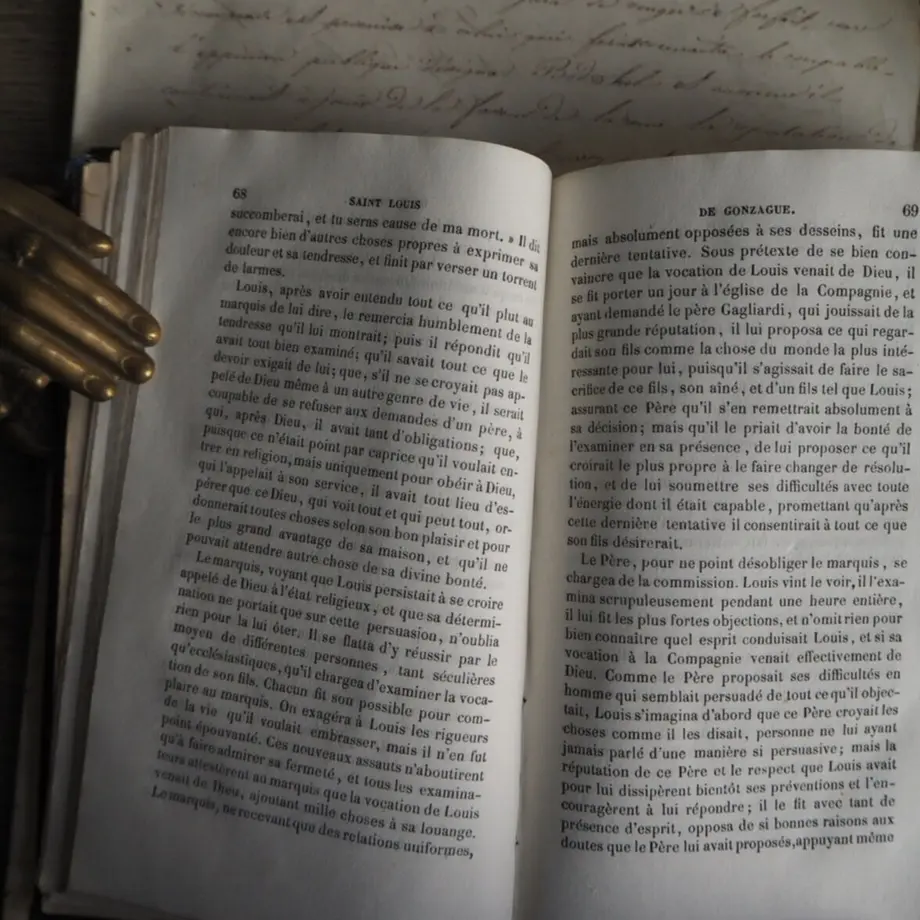 68
SAINT LOUIS
succomberai, et tu seras cause de ma mort. » Il dit
encore bien d'autres choses propres à exprimer sa
douleur et sa tendresse, et finit par verser un torrent
de larmes.
Louis, après avoir entendu tout ce qu'il plut au
marquis de lui dire, le remercia humblement de la
tendresse qu'il lui montrait; puis il répondit qu'il
avait tout bien examiné; qu'il savait tout ce que le
devoir exigeait de lui; que, s'il ne se croyait pas ap-
pelé de Dieu même à un autre genre de vie, il serait
coupable de se refuser aux demandes d'un père, à
qui, après Dieu, il avait tant d'obligations; que,
puisque ce n'était point par caprice qu'il voulait en-
trer en religion, mais uniquement pour obéir à Dieu,
qui l'appelait à son service, il avait tout lieu d'es-
pérer que ce Dieu, qui voit tout et qui peut tout, or-
donnerait toutes choses selon son bon plaisir et pour
le plus grand avantage de sa maison, et qu'il ne
pouvait attendre autre chose de sa divine bonté.
Le marquis, voyant que Louis persistait à se croire
appelé de Dieu à l'état religieux, et que sa détermi-
nation ne portait que sur cette persuasion, n'oublia
rien pour la lui ôter. Il se flatta d'y réussir par le
moyen de différentes personnes, tant séculières
qu'ecclésiastiques, qu'il chargea d'examiner la voca-
tion de son fils. Chacun fit son possible pour com-
plaire au marquis. On exagéra à Louis les rigueurs
de la vie qu'il voulait embrasser, mais il n'en fut
point épouvanté. Ces nouveaux assauts n'aboutirent
qu'à faire admirer sa fermeté, et tous les examina-
teurs attestèrent au marquis que la vocation de Louis
venait de Dieu, ajoutant mille choses à sa louange.
Le marquis, ne recevant que des relations uniformes,
DE GONZAGUE.
69
mais absolument opposées à ses desseins, fit une
dernière tentative. Sous prétexte de se bien con-
vaincre que la vocation de Louis venait de Dieu, il
se fit porter un jour à l'église de la Compagnie, et
ayant demandé le père Gagliardi, qui jouissait de la
plus grande réputation, il lui proposa ce qui regar-
dait son fils comme la chose du monde la plus inté-
ressante pour lui, puisqu'il s'agissait de faire le sa-
crifice de ce fils, son aîné, et d'un fils tel que Louis;
assurant ce Père qu'il s'en remettrait absolument à
sa décision; mais qu'il le priait d'avoir la bonté de
l'examiner en sa présence, de lui proposer ce qu'il
croirait le plus propre à le faire changer de résolu-
tion, et de lui soumettre ses difficultés avec toute
l'énergie dont il était capable, promettant qu'après
cette dernière tentative il consentirait à tout ce que
son fils désirerait.
Le Père, pour ne point désobliger le marquis, se
chargea de la commission. Louis vint le voir, il l'exa-
mina scrupuleusement pendant une heure entière,
il lui fit les plus fortes objections, et n'omit rien pour
bien connaître quel esprit conduisait Louis, et si sa
vocation à la Compagnie venait effectivement de
Dieu. Comme le Père proposait ses difficultés en
homme qui semblait persuadé de tout ce qu'il objec-
tait, Louis s'imagina d'abord que ce Père croyait les
choses comme il les disait, personne ne lui ayant
jamais parlé d'une manière si persuasive; mais la
réputation de ce Père et le respect que Louis avait
pour lui dissipèrent bientôt ses préventions et l'en-
couragèrent à lui répondre; il le fit avec tant de
présence d'esprit, opposa de si bonnes raisons aux
doutes que le Père lui avait proposés, appuyant même